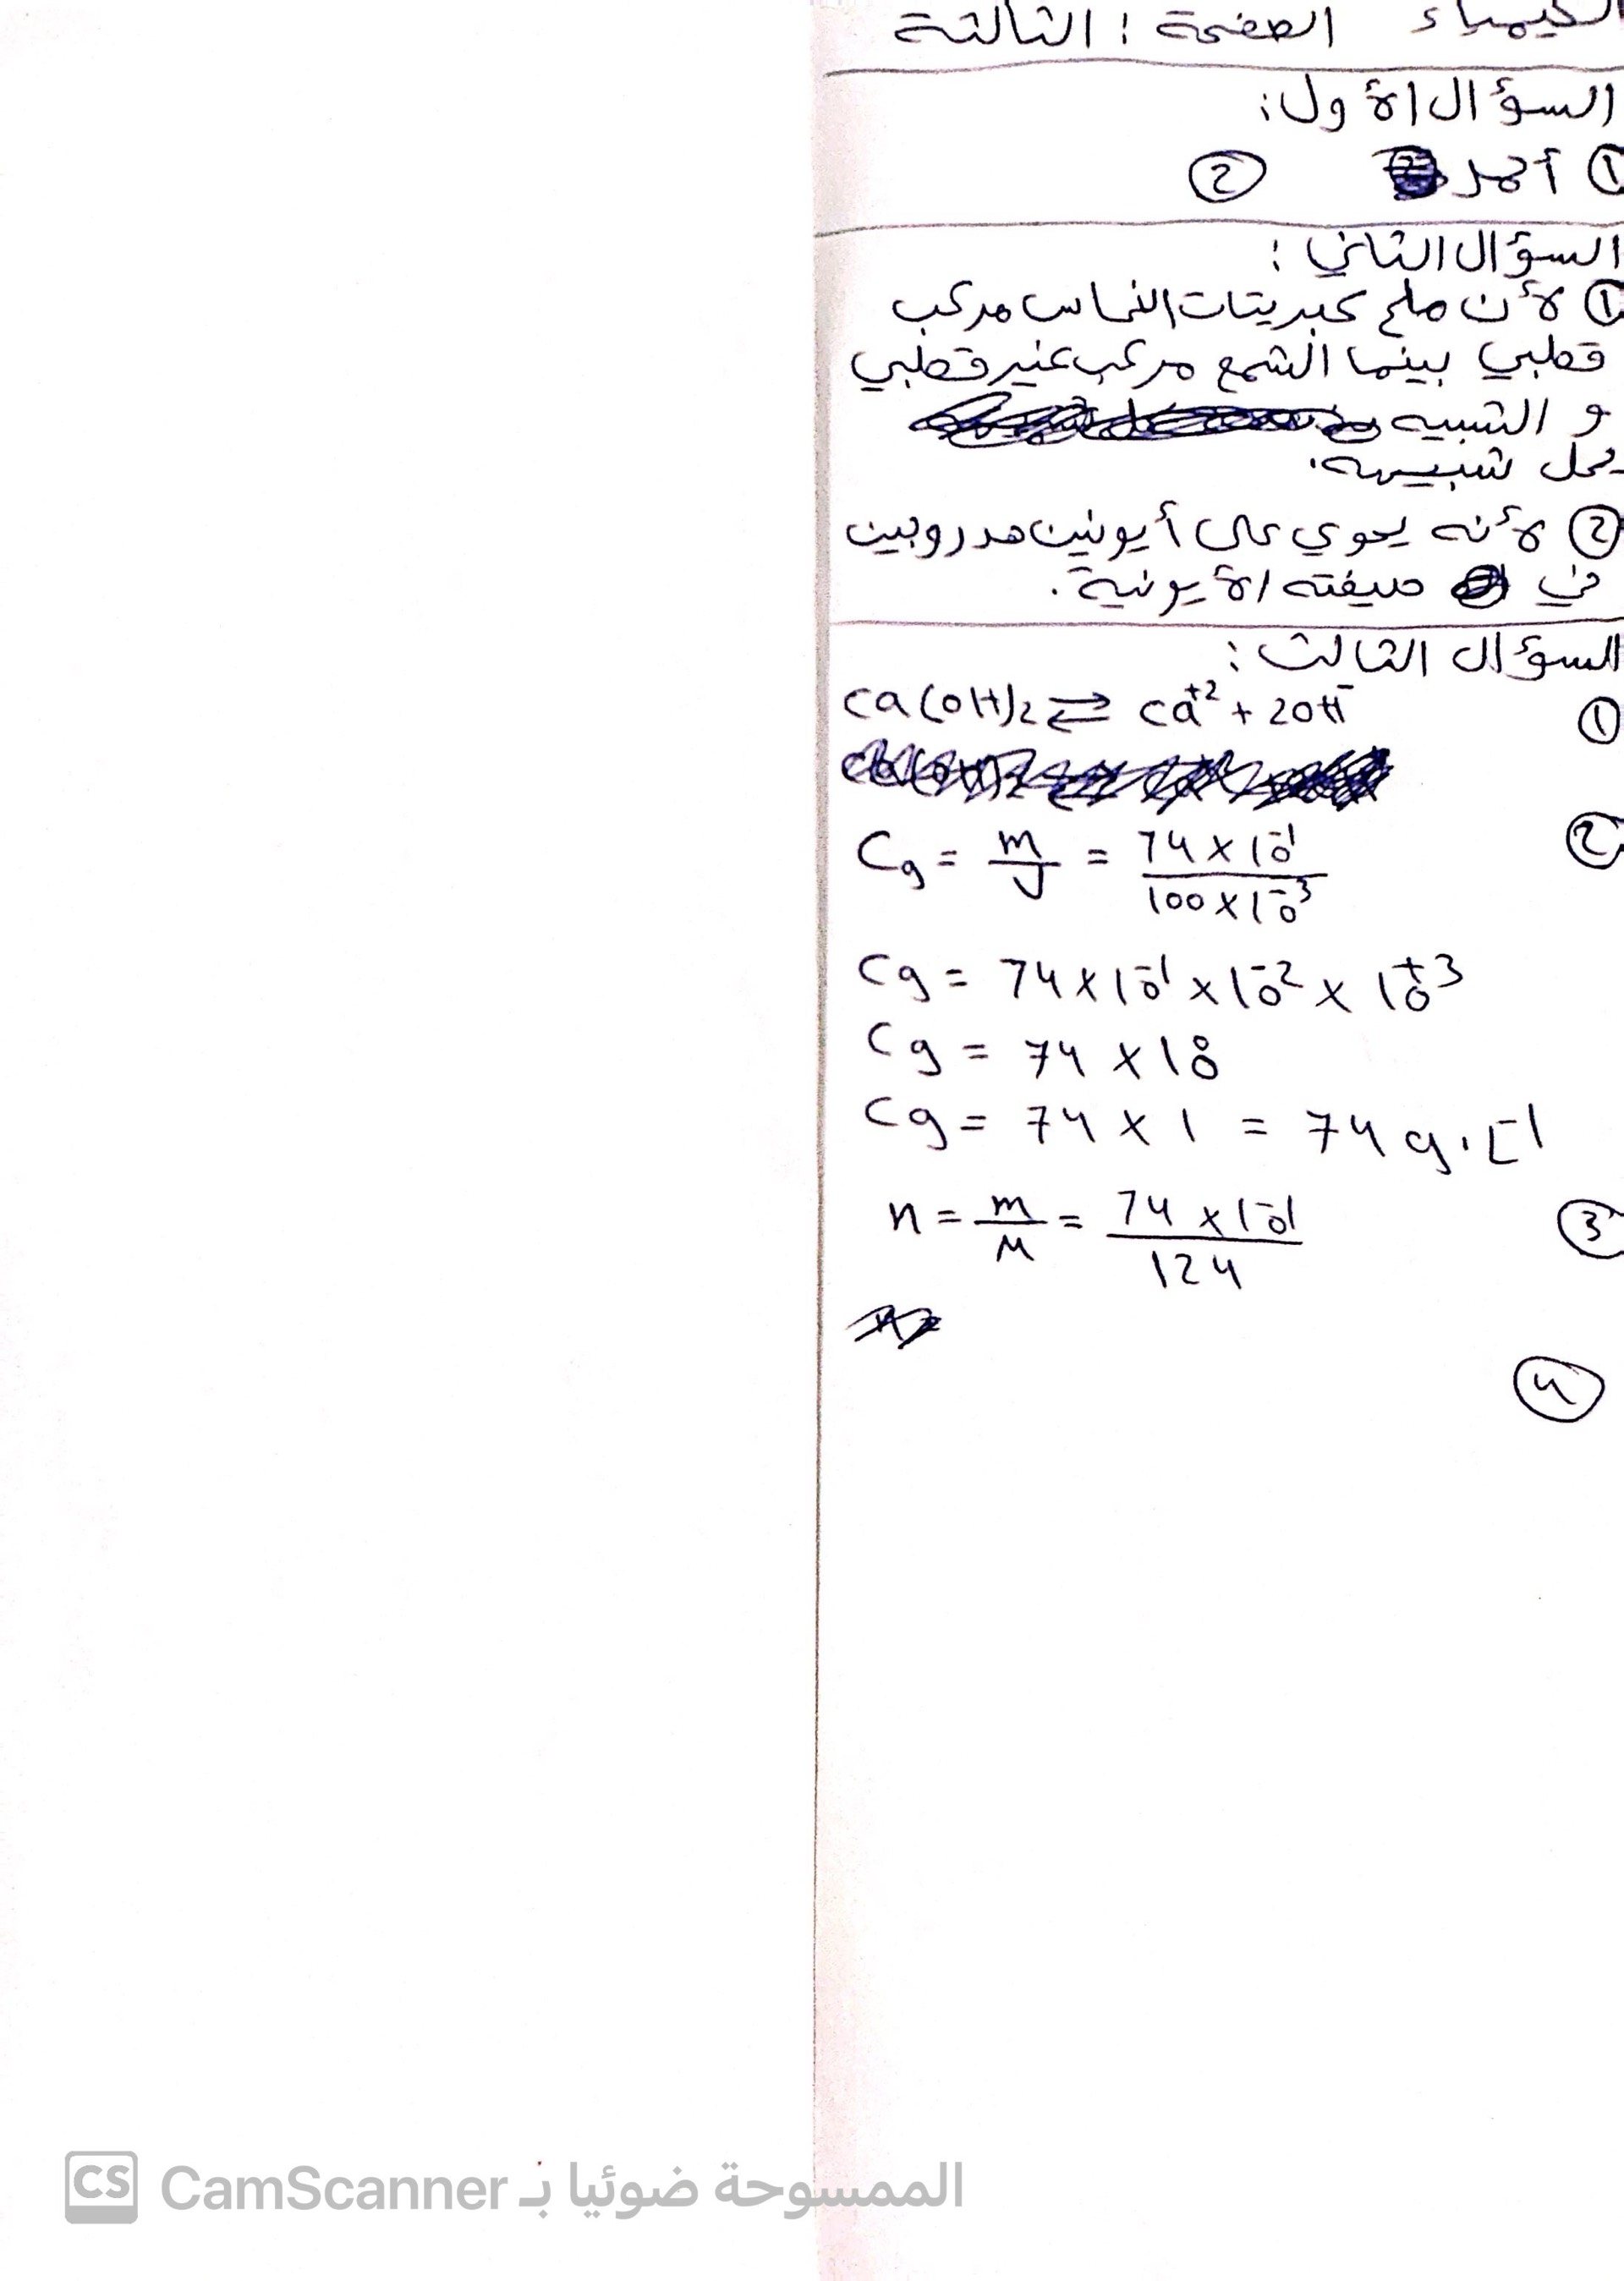 الكيمياء الصفحة : الثالثة
السؤال الأول:
① أحمر ②
السؤال الثاني :
① لأن ملح كبريتات النحاس مركب
قطبي بينما الشمع مركب غير قطبي
و الشبيه
يحل شبيهه.
② لأنه يحوي على أيونين هدروجين
في صيغته الأيونية.
السؤال الثالث :
① Ca(OH)₂ ⇄ Ca⁺² + 2OH⁻
② Cg = m/V = 74 × 10⁻¹ / 100 × 10⁻³
Cg = 74 × 10⁻¹ × 10⁻² × 10⁺³
Cg = 74 × 10⁰
Cg = 74 × 1 = 74 g.L⁻¹
③ n = m/M = 74 × 10⁻¹ / 124
④
CS CamScanner الممسوحة ضوئيا بـ